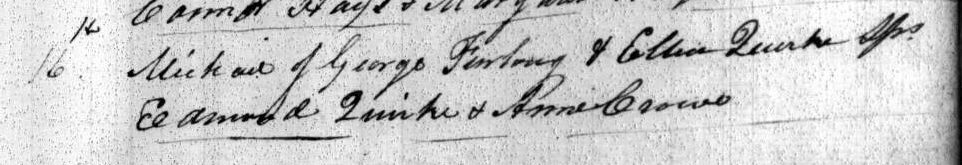 Connor Hays &
16. Michael of George Furlong & Ellen Quirke Sps
Edmund Quirke & Anne Crowe